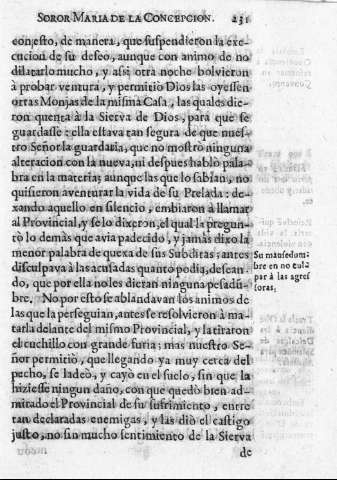 SOROR MARIA DE LA CONCEPCION. 231
con esto, de manera, que suspendieron la exe-
cucion de su desseo, aunque con animo de no
dilatarlo mucho, y assi otra noche bolvieron
à probar ventura, y permitiò Dios las oyessen
otras Monjas de la misma Casa, las quales die-
ron quenta à la Sierva de Dios, para que se
guardasse: ella estava tan segura de que nues-
tro Señor la guardaria, que no mostrò ninguna
alteracion con la nueva, ni despues hablò pala-
bra en la materia; aunque las que lo sabian, no
quisieron aventurar la vida de su Prelada: de-
xando aquello en silencio, embiaron à llamar
al Provincial, y se lo dixeron, el qual la pregun-
tò lo demàs que avia padecido, y jamàs dixo la
menor palabra de quexa de sus Subditas; antes
disculpava à las acusadas quanto podia, desean-
do, que por ella no les dieran ninguna pesadū-
bre. No por esto se ablandavan los animos de
las que la perseguian, antes se resolvieron à ma-
tarla delante del mismo Provincial, y la tiraron
el cuchillo con grande furia; mas nuestro Se-
ñor permitiò, que llegando ya muy cerca del
pecho, se ladeò, y cayò en el suelo, sin que la
hiziesse ningun daño, con que quedò bien ad-
mirado el Provincial de su sufrimiento, entre
tan declaradas enemigas, y las diò el castigo
justo, no sin mucho sentimiento de la Sierva
de
Su mansedum-
bre en no cul-
par à las agres
soras.